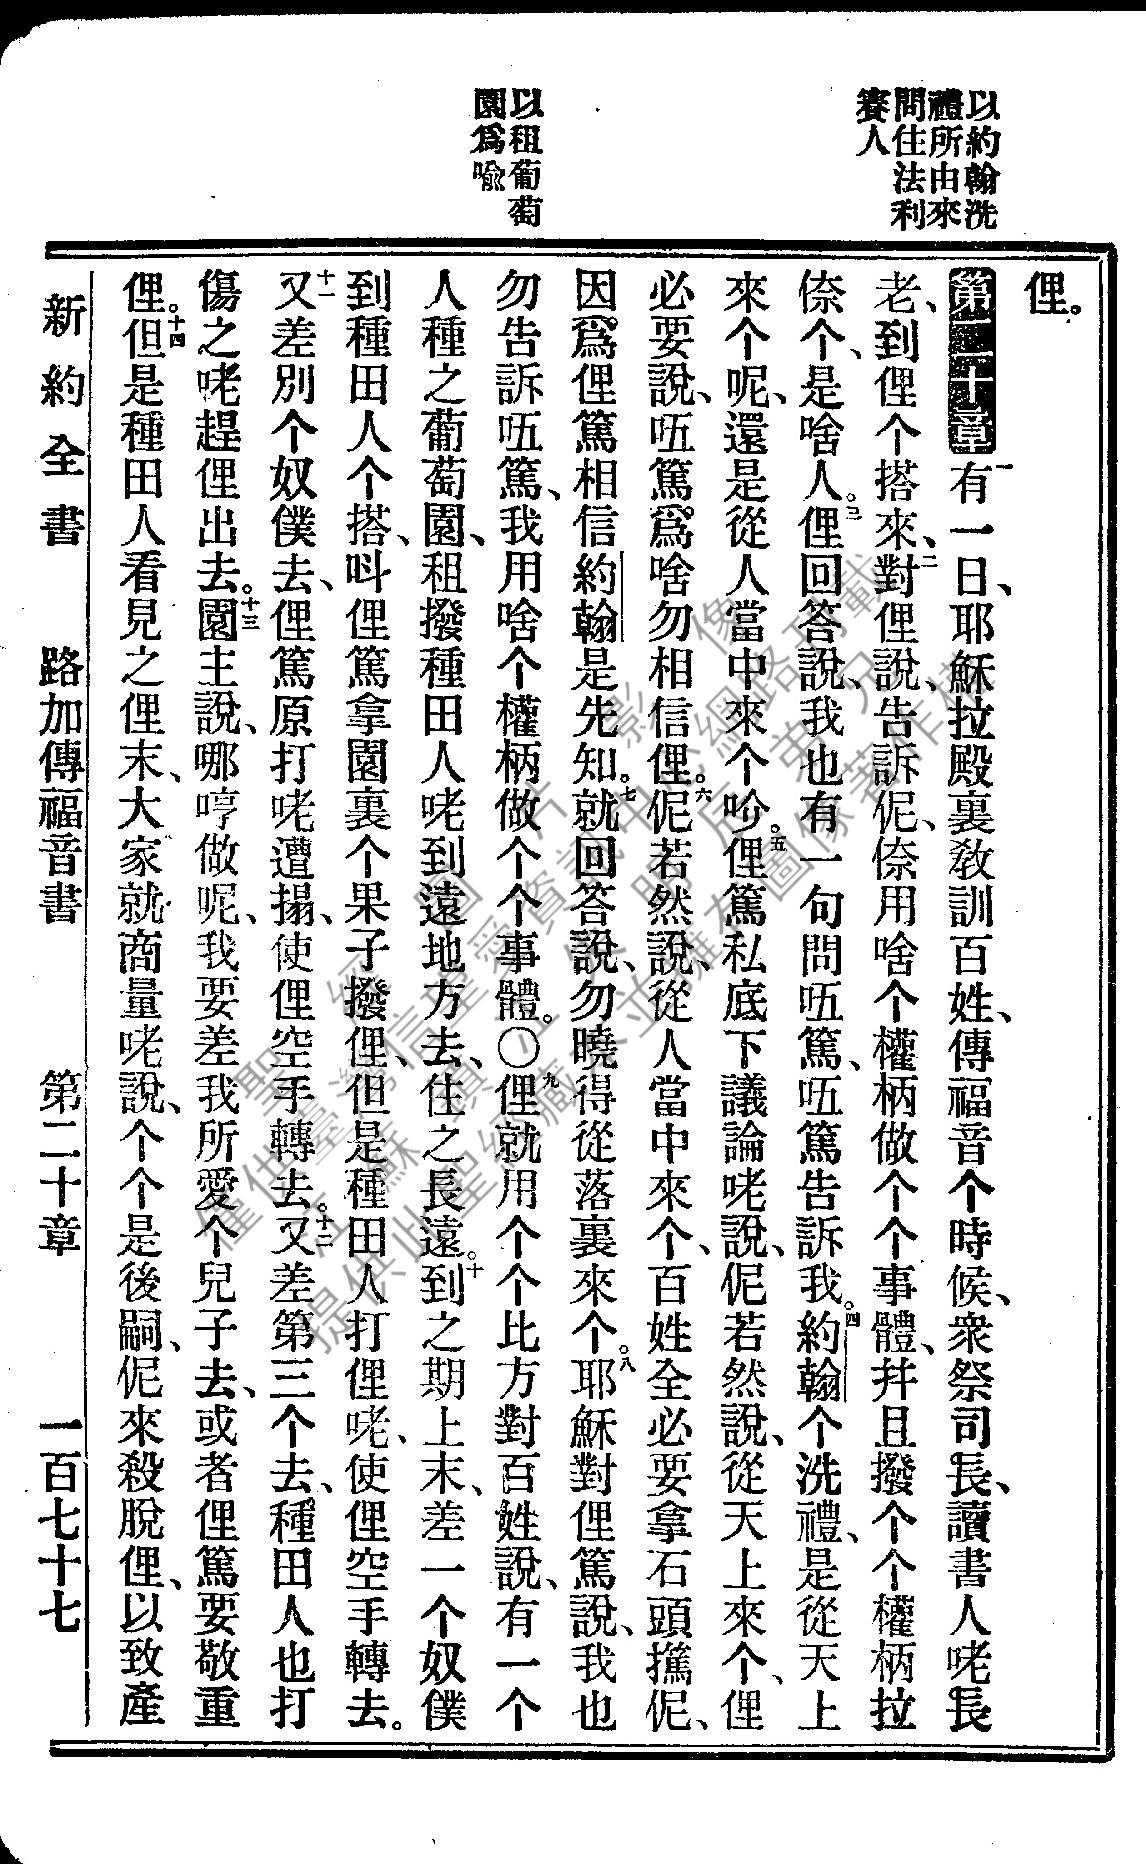 以約翰洗
禮所由來
問住法利
賽人
以租葡萄
園爲喩
俚。
第二十章 一有一日、耶穌拉殿裏敎訓百姓、傳福音个時候、衆祭司長、讀書人咾長
老、到俚个搭來、二對俚說、告訴伲、倷用啥个權柄做个个事體、幷且撥个个權柄拉
倷个、是啥人。三俚回答說、我也有一句問㑚篤、㑚篤告訴我。四約翰个洗禮、是從天上
來个呢、還是從人當中來个吤。五俚篤私底下議論咾說、伲若然說、從天上來个、俚
必要說、㑚篤爲啥勿相信俚。六伲若然說、從人當中來个、百姓全必要拿石頭㩧伲、
因爲俚篤相信約翰是先知。七就回答說、勿曉得從落裏來个。八耶穌對俚篤說、我也
勿告訴㑚篤、我用啥个權柄做个个事體。〇九俚就用个个比方對百姓說、有一个
人種之葡萄園、租撥種田人咾到遠地方去、住之長遠。十到之期上末、差一个奴僕
到種田人个搭、呌俚篤拿園裏个果子撥俚、但是種田人打俚咾、使俚空手轉去。
十一又差別个奴僕去、俚篤原打咾遭搨、使俚空手轉去。十二又差第三个去、種田人也打
傷之咾趕俚出去。十三園主說、哪哼做呢、我要差我所愛个兒子去、或者俚篤要敬重
俚。十四但是種田人看見之俚末、大家就商量咾說、个个是後嗣、伲來殺脫俚、以致產
新約全書 路加傳福音書 第二十章 一百七十七